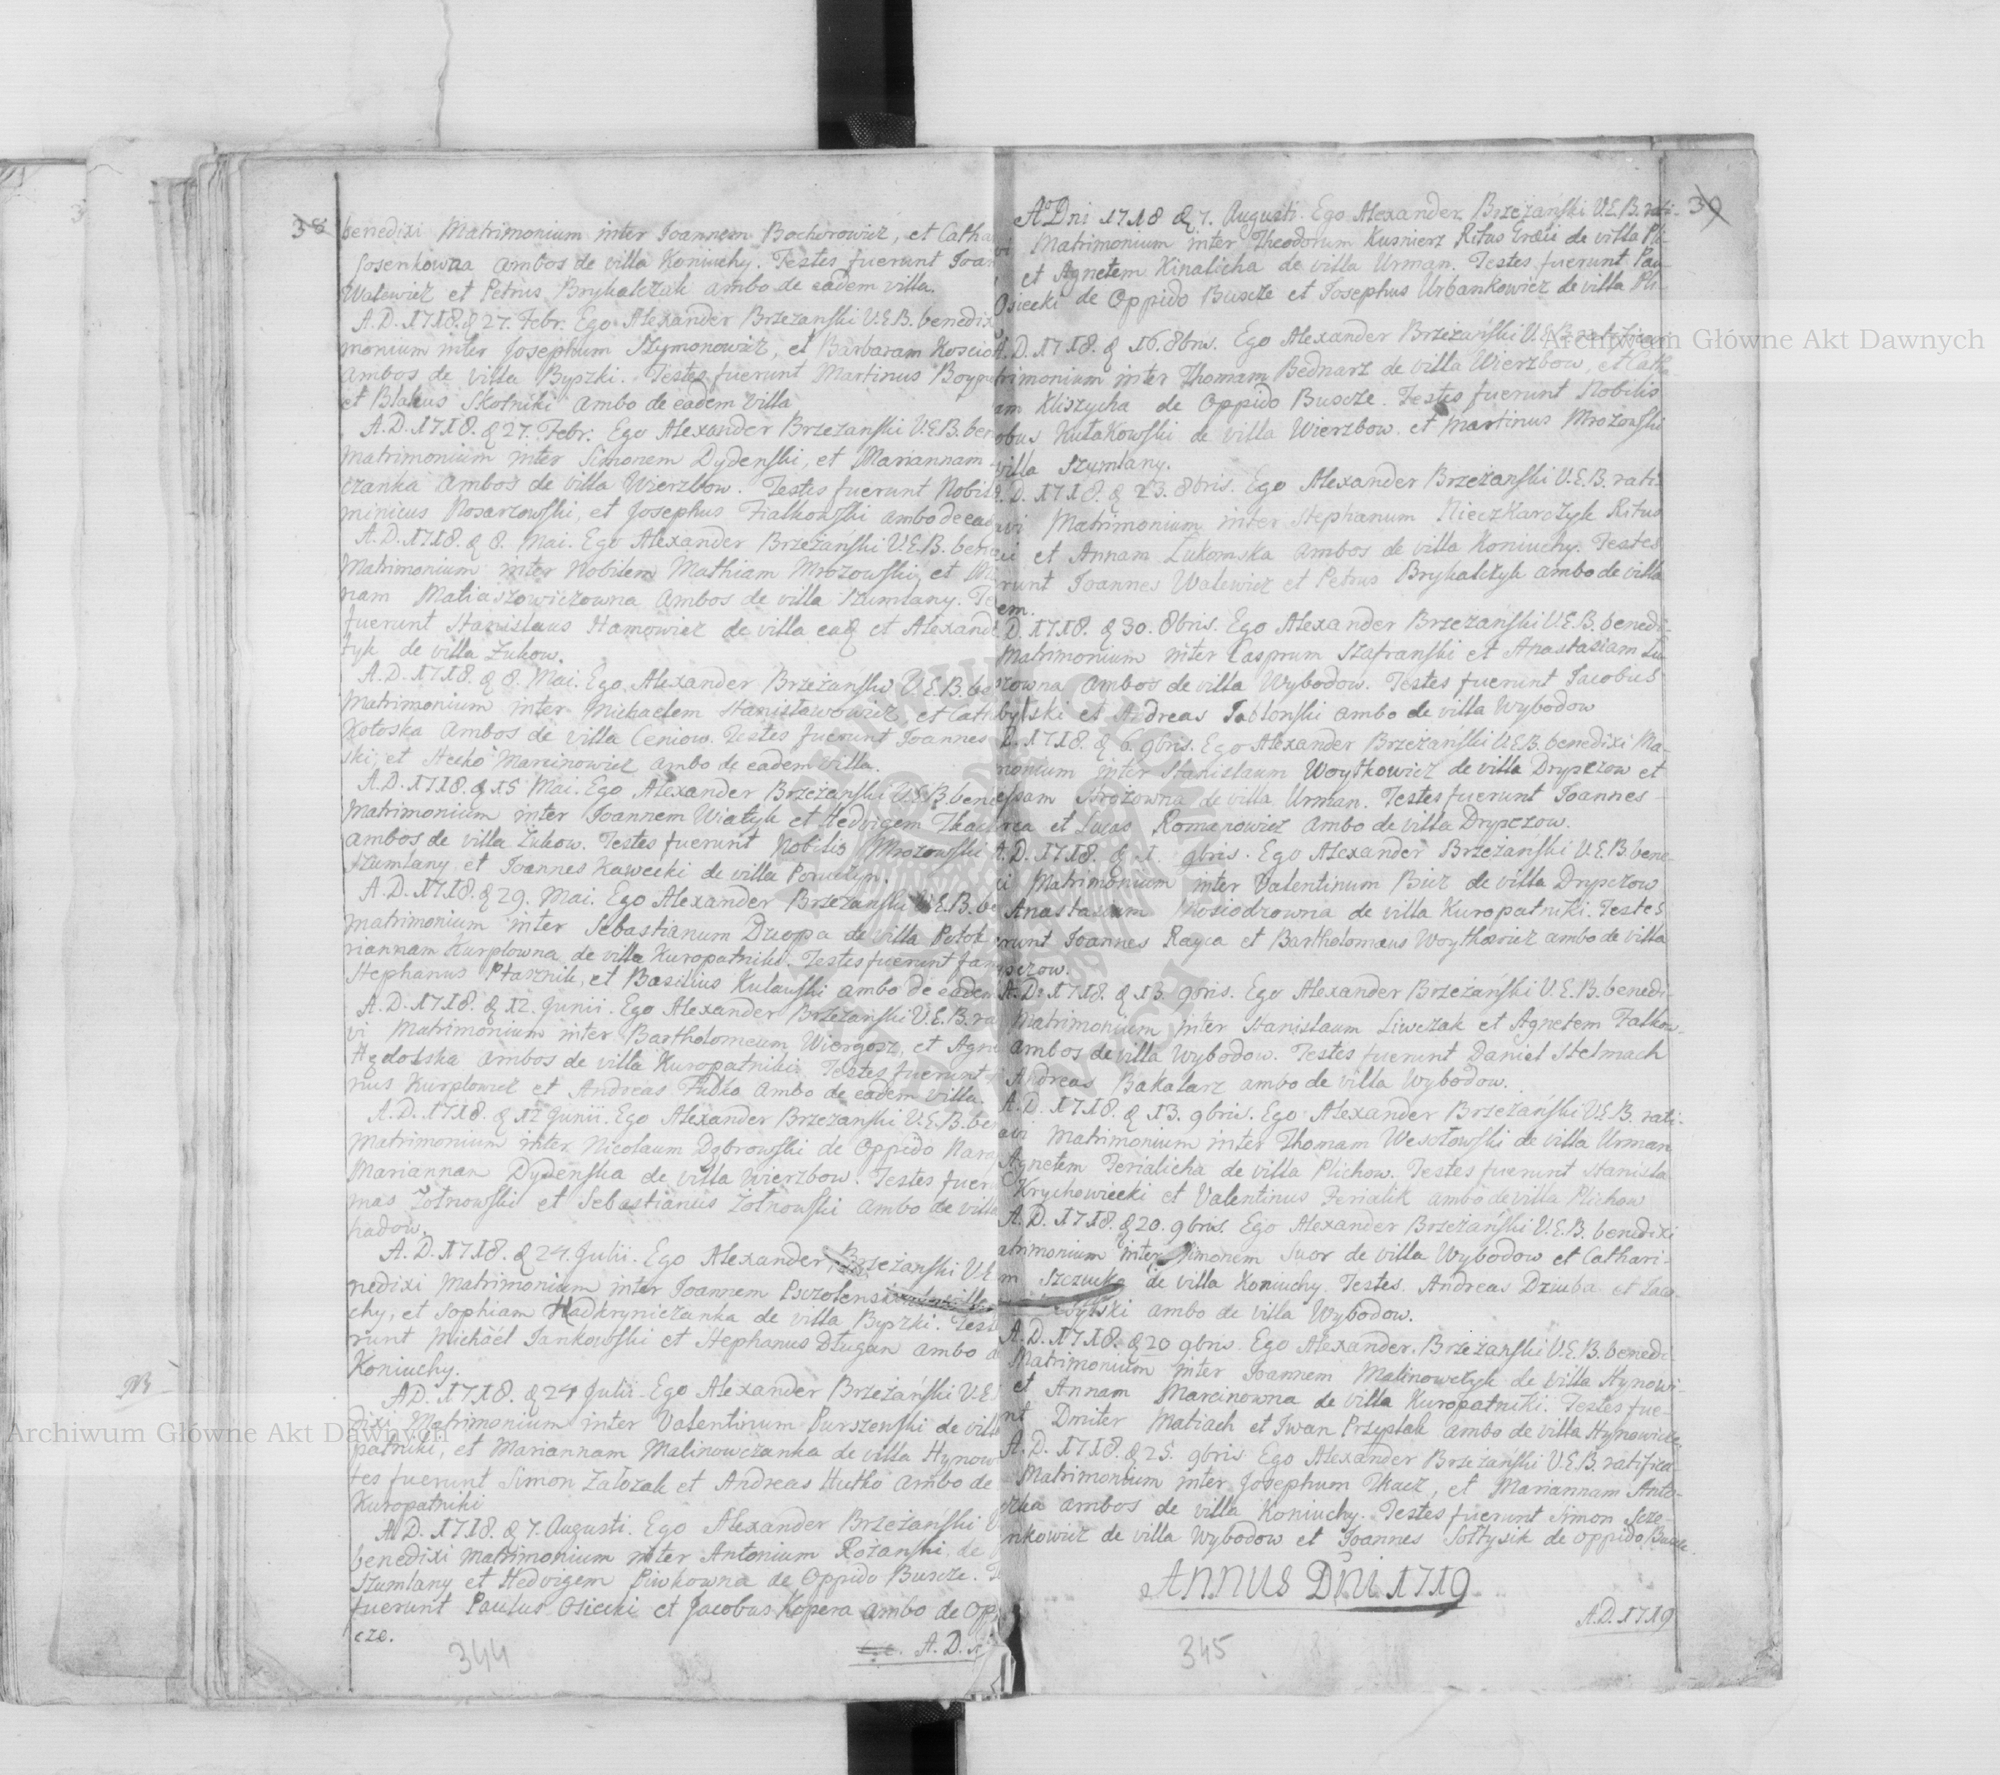 38
benedixi Matrimonium inter Joannem Bochorowicz, et Catha
Josenkowna ambos de villa Koniuchy. Testes fuerunt Joan
Walewicz et Petrus Brykalczak ambo de eadem villa.
A.D. 1718. & 27. Febr. Ego Alexander Brzeżański V.E.B. benedix
monium inter Josephum Szymonowicz, et Barbaram Koscio
ambos de villa Byszki. Testes fuerunt Martinus
et Blasius Skotniki ambo de eadem villa
A.D. 1718. & 27. Febr. Ego Alexander Brzeżański V.E.B. ben
matrimonium inter Simonem Dydenski, et Mariannam
czanka ambos de villa Wierzbow. Testes fuerunt Nobil
minicus Kosarzowski, et Josephus Fialkowski ambo de ead
A.D. 1718. & 8. Mai. Ego Alexander Brzeżański V.E.B. bene
Matrimonium inter Nobilem Mathiam Mrozowski, et
nam Matiaszowiczowna ambos de villa Szumlany. Te
fuerunt Stanislaus Hamowicz de villa ead et Alexand
tyk de villa Żukow.
A.D. 1718. & 8. Mai. Ego Alexander Brzeżański V.E.B. be
Matrimonium inter Michaelem Stanisławowicz, et Cath
Kotoska ambos de villa Ceniow. Testes fuerunt Joannes
ski, et Hecko Marcinowicz ambo de eadem villa.
A.D. 1718. & 15 Mai. Ego Alexander Brzeżański V.E.B. bene
Matrimonium inter Joannem Wiatyk et Hedvigem Tkac
ambos de villa Żukow. Testes fuerunt Nobilis Mrozowski
Szumlany et Joannes Kawecki de villa Poruczyn.
A.D. 1718. & 29. Mai. Ego Alexander Brzeżański V.E.B. be
matrimonium inter Sebastianum Dziopa de villa Potok
riannam Kurplowna de villa Kuropatniki. Testes fuerunt fam
Stephanus Ptasznik, et Basilius Kulawski ambo de eadem
A.D. 1718. & 12 Junii. Ego Alexander Brzeżański V.E.B. ra
vi Matrimonium inter Bartholomeum Wiergosz, et Agne
ambos de villa Kuropatniki. Testes fuerunt
nus Kurplowicz et Andreas Hutko ambo de eadem villa.
A.D. 1718. & 12 Junii. Ego Alexander Brzeżański V.E.B. be
Matrimonium inter Nicolaum Dąbrowski de Oppido Nara
Mariannan Dydenska de villa Wierzbow. Testes fuer
mas Żołnowski et Sebastianus Żołnowski ambo de villa
hadow.
A.D. 1718. & 24. Julii. Ego Alexander Brzeżański V.E
nedixi Matrimonium inter Joannem
chy, et Sophiam Nadkryniczanka de villa Byszki. Test
runt Michael Jankowski et Stephanus Długan ambo d
Koniuchy.
A.D. 1718. & 24 Julii. Ego Alexander Brzeżański V.E
dixi Matrimonium inter Valentinum Purszenski de vill
patniki, et Mariannam Malinowczanka de villa Hynow
tes fuerunt Simon Załozak et Andreas Hutko ambo de
Kuropatniki
A.D. 1718. & 7. Augusti. Ego Alexander Brzeżański V
benedixi matrimonium inter Antonium Rożanski de
Szumlany et Hedvigem Piwkowna de Oppido Buszcze. T
fuerunt Paulus Osiecki et Jacobus Kopera ambo de Opp
cze.
A.D.
344
39
A Dni 1718 & 7. Augusti. Ego Alexander Brzeżański V.E.B. rati-
vi Matrimonium inter Theodorum Kusnierz Ritus Graeci de villa Pli-
et Agnetem Kinalicha de villa Urman. Testes fuerunt Pau-
Osiecki de Oppido Buszcze et Josephus Urbankowicz de villa Pli-
A.D. 1718. & 16. 8bris. Ego Alexander Brzeżański V.E.B. ratifica
trimonium inter Thomam Bednarz de villa Wierzbow, et Catha-
am Kliszycha de Oppido Buszcze. Testes fuerunt Nobilis
obus Kułakowski de villa Wierzbow. et Martinus Mrozowski
villa Szumlany.
A.D. 1718. & 23. 8bris. Ego Alexander Brzeżański V.E.B. rati
avi Matrimonium inter Stephanum Nieczkarczyk Ritus
ci et Annam Łukomska ambos de villa Koniuchy. Testes
runt Joannes Walewicz et Petrus Brykalczyk ambo de villa
em.
D. 1718. & 30. 8bris. Ego Alexander Brzeżański V.E.B. benedi-
Matrimonium inter Casprum Szafranski et Anastasiam Lu-
zowna ambos de villa Wybodow. Testes fuerunt Jacobus
bylski et Andreas Jablonski ambo de villa Wybodow
D. 1718. & 6. 9bris. Ego Alexander Brzeżański V.E.B. benedixi Ma-
monium inter Stanislaum Woytkowicz de villa Dryszczow et
Strozowna de villa Urman. Testes fuerunt Joannes
et Lucas Romanowicz ambo de villa Dryszczow.
A.D. 1718. & 1. 9bris. Ego Alexander Brzeżański V.E.B. bene-
ci Matrimonium inter Valentinum Bicz de villa Dryszczow
Anastasiam Niosiodzowna de villa Kuropatniki. Testes
runt Joannes Rayca et Bartholomeus Woytkowicz ambo de villa
szczow.
A.D. 1718. & 13. 9bris. Ego Alexander Brzeżański V.E.B. benedi-
Matrimonium inter Stanislaum Liwczak et Agnetem Falkow-
ambos de villa Wybodow. Testes fuerunt Daniel Stelmach
Andreas Bakalarz ambo de villa Wybodow.
A.D. 1718. & 13. 9bris. Ego Alexander Brzeżański V.E.B. rati-
avi Matrimonium inter Thomam Wesołowski de villa Urman
Agnetem Perialicha de villa Plichow. Testes fuerunt Stanisla
Krychowiecki et Valentinus Perialik ambo de villa Plichow
A.D. 1718. & 20. 9bris. Ego Alexander Brzeżański V.E.B. benedixi
atrimonium inter Simonem Suor de villa Wybodow et Cathari-
m Szczucka de villa Koniuchy. Testes. Andreas Dziuba et Jaco-
ambo de villa Wybodow.
A.D. 1718. & 20 9bris. Ego Alexander Brzeżański V.E.B. benedi-
Matrimonium inter Joannem Malinowczyk de villa Hynowi-
et Annam Marcinowna de villa Kuropatniki. Testes fue-
nt Dmiter Matiach et Iwan Przystak ambo de villa Hynowicze
A.D. 1718. & 25. 9bris Ego Alexander Brzeżański V.E.B. ratifica-
Matrimonium inter Josephum Tkacz, et Mariannam Anto-
ambos de villa Koniuchy. Testes fuerunt Simon Scze-
nkowicz de villa Wybodow et Joannes Sołtysik de oppido Buszcze.
ANNUS Dni 1719
A.D. 1719
345
Archiwum Główne Akt Dawnych
Archiwum Główne Akt Dawnych